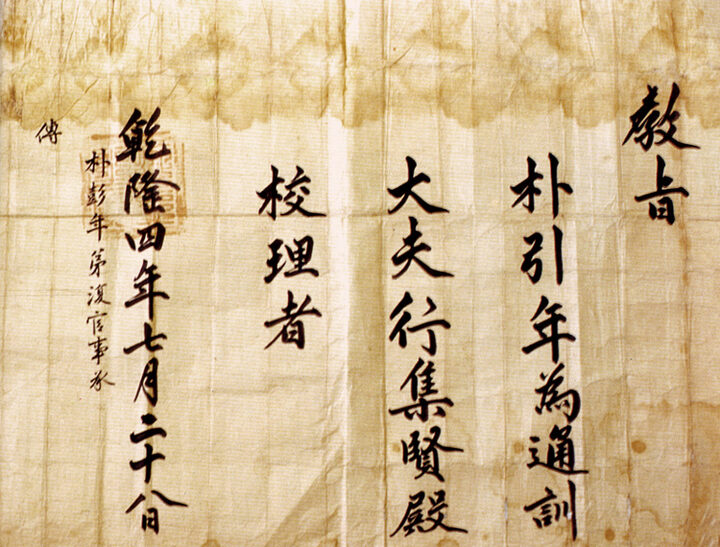 教旨
朴引年為通訓
大夫行集賢殿
校理者
乾隆四年七月二十八日
朴彭年弟復官事承
傳